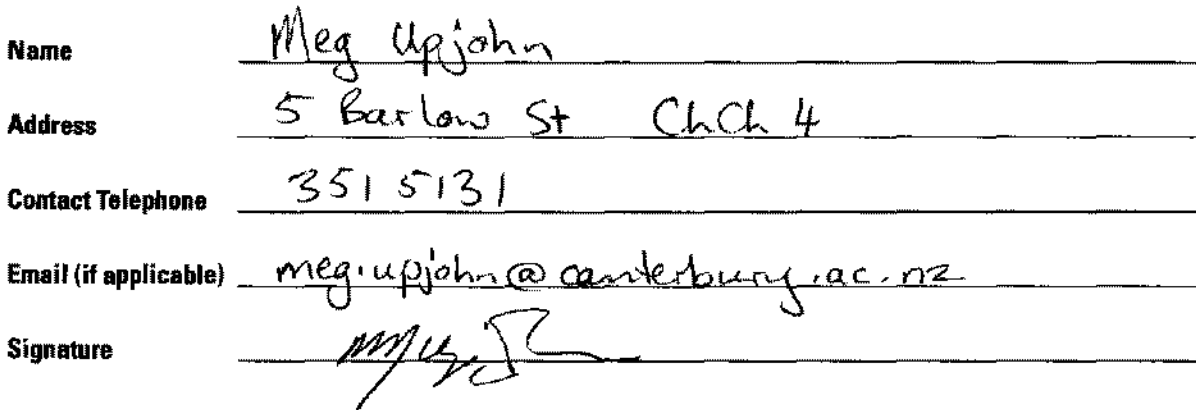 Name Meg Upjohn
Address 5 Barlow St ChCh 4
Contact Telephone 351 5131
Email (if applicable) meg.upjohn@canterbury.ac.nz
Signature